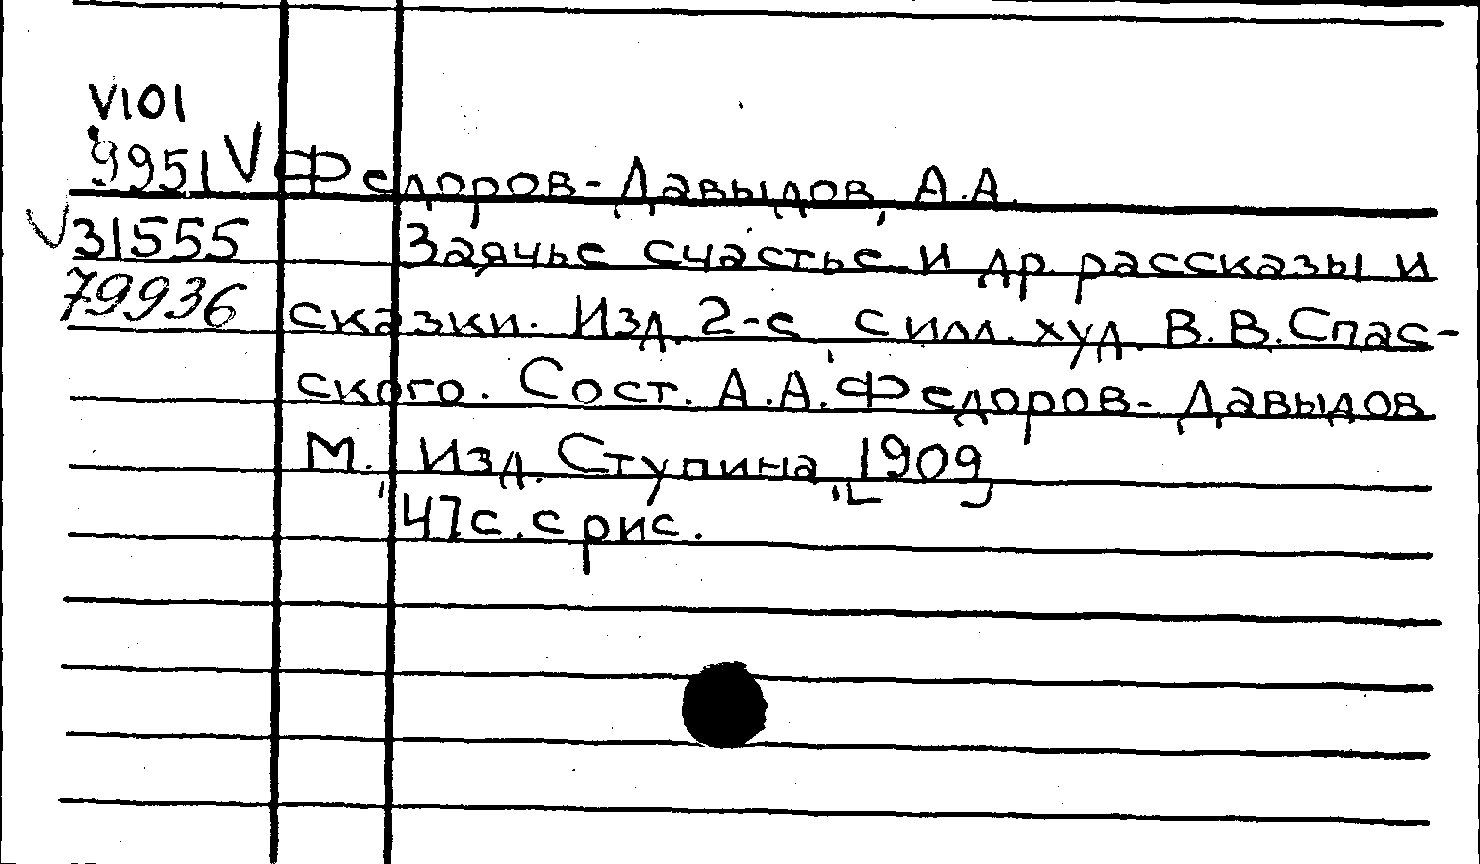 V101
9951 V Федоров-Давыдов, А.А.
V 31555 Заячье счастье и др. рассказы и
79936 сказки. Изд. 2-е, с илл. худ. В.В.Спас-
ского. Сост. А.А.Федоров-Давыдов
М., Изд. Ступина, [1909]
47с. с рис.